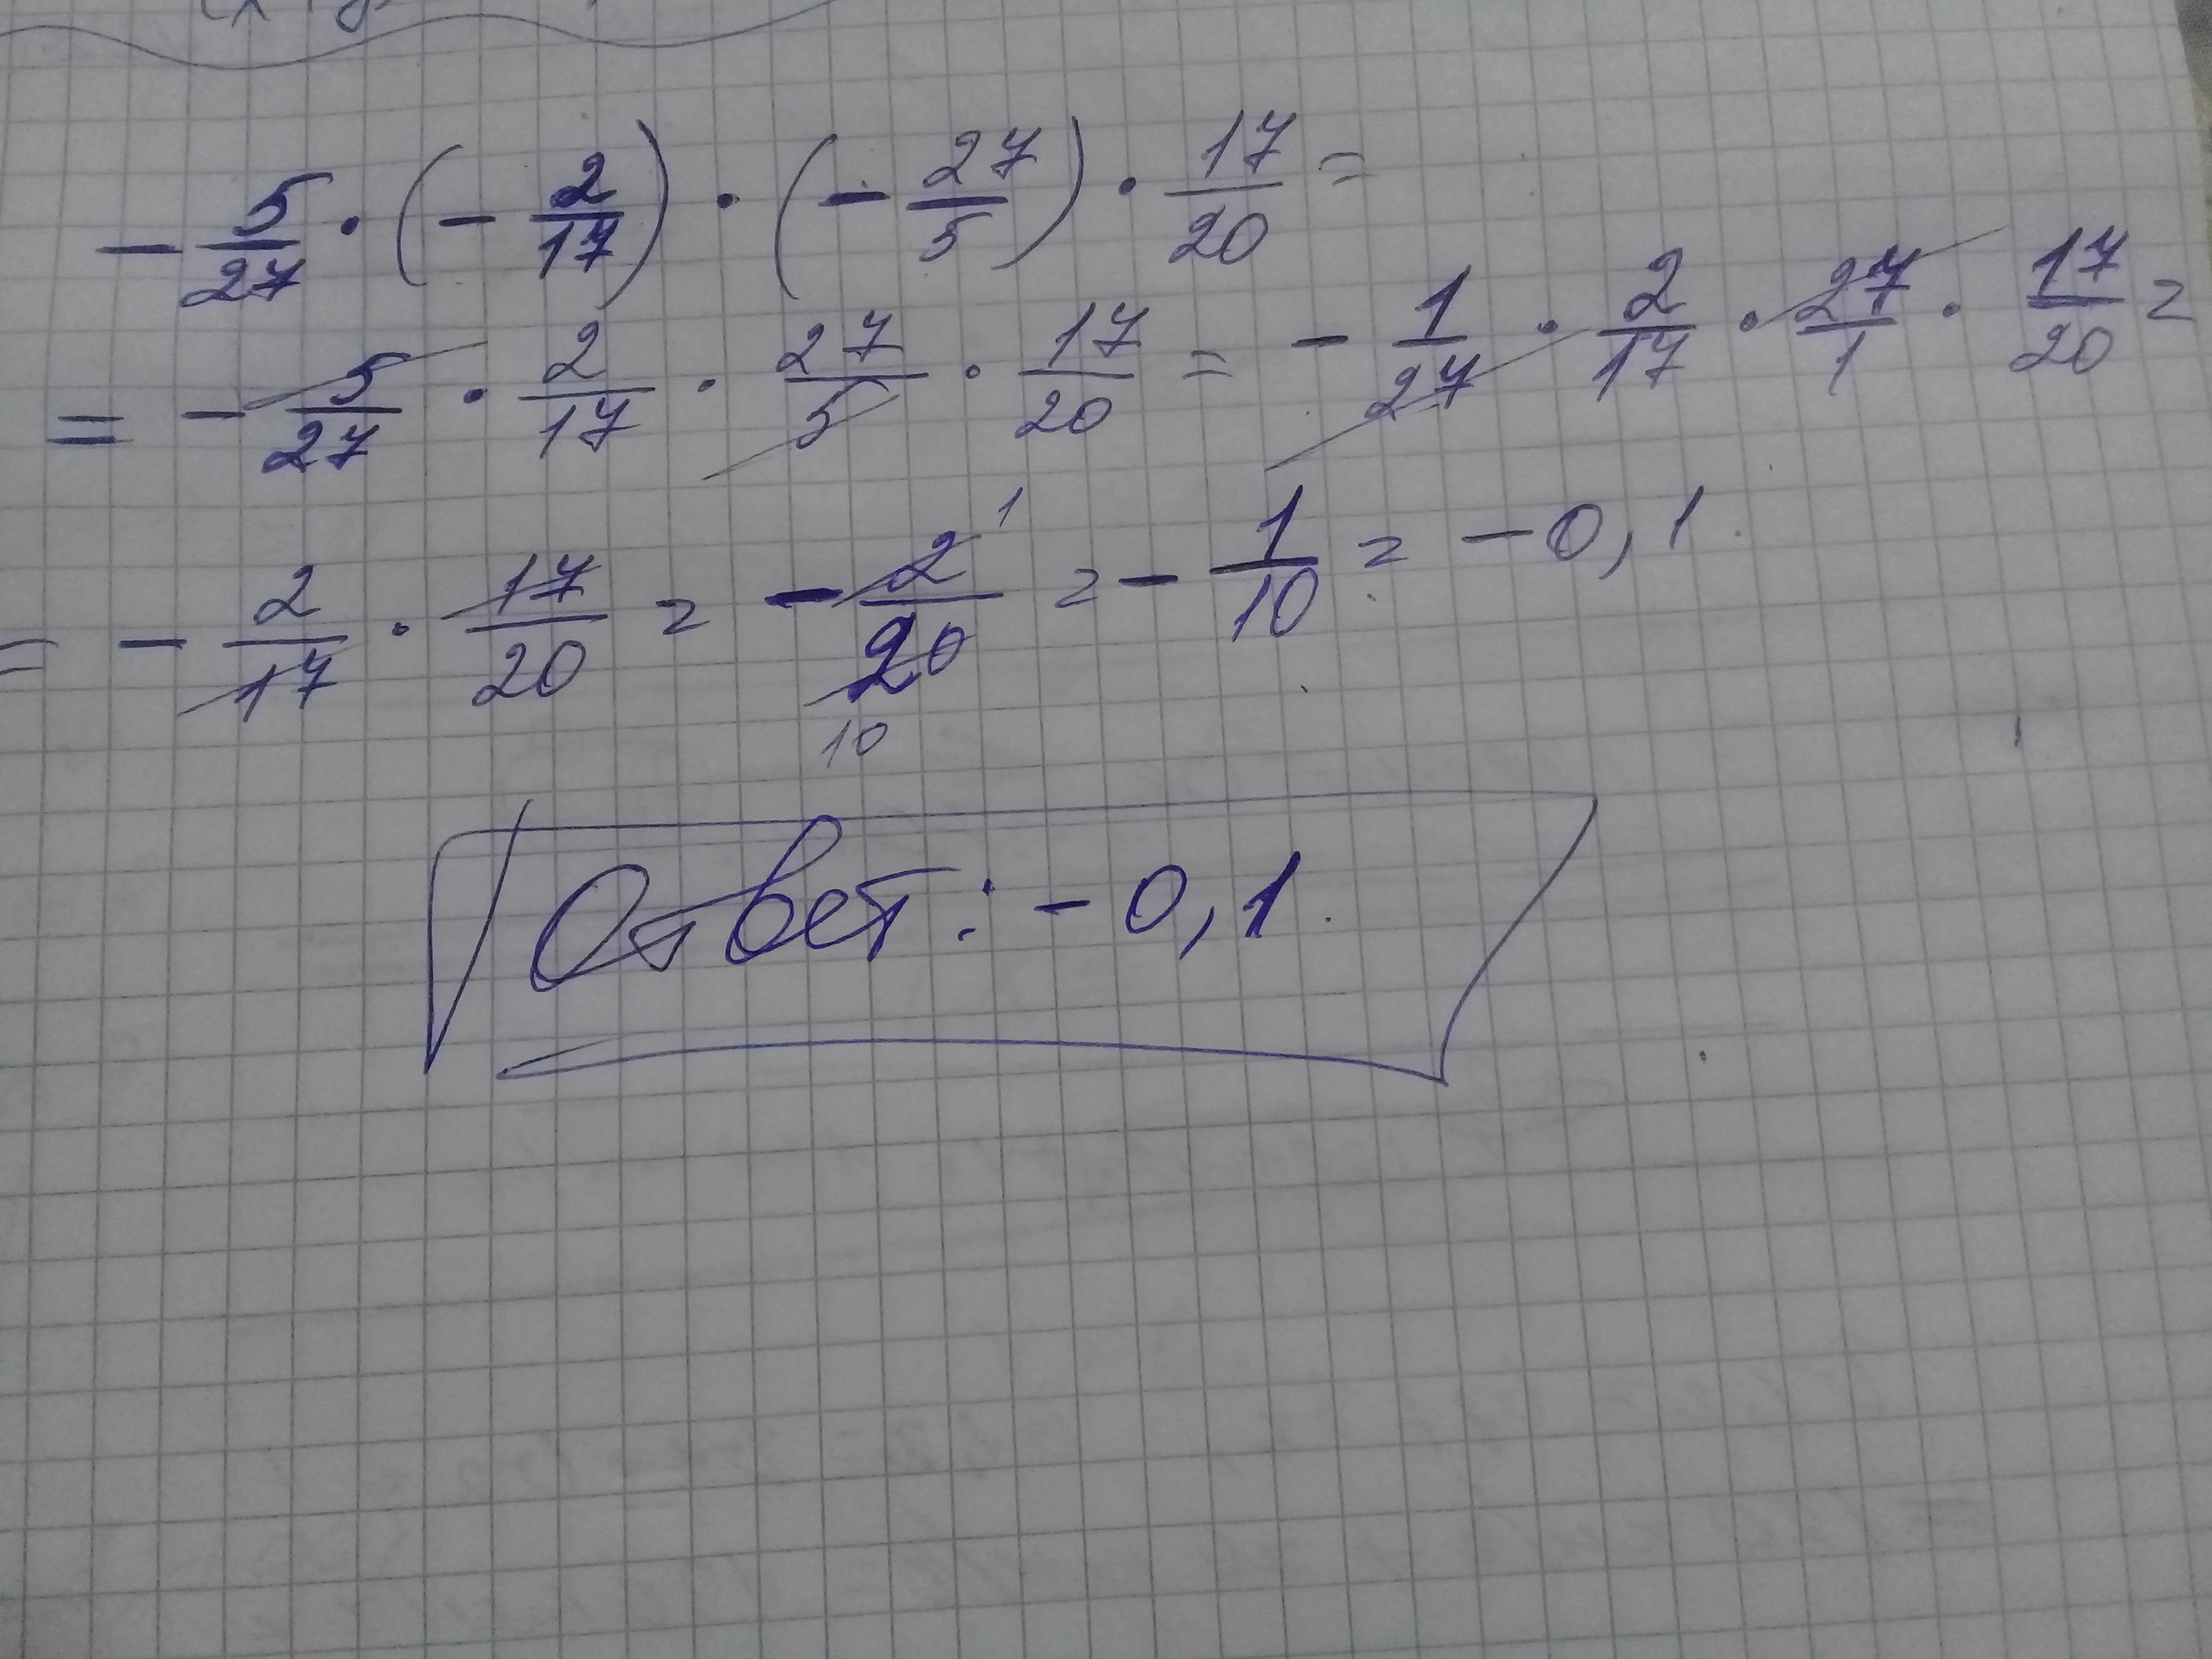 - 5/27 · (- 2/17) · (- 27/5) · 17/20 =
= - 5/27 · 2/17 · 27/5 · 17/20 = - 1/27 · 2/17 · 27/1 · 17/20 =
= - 2/17 · 17/20 = - 2/20 1 10 = - 1/10 = -0,1.
Ответ: -0,1.